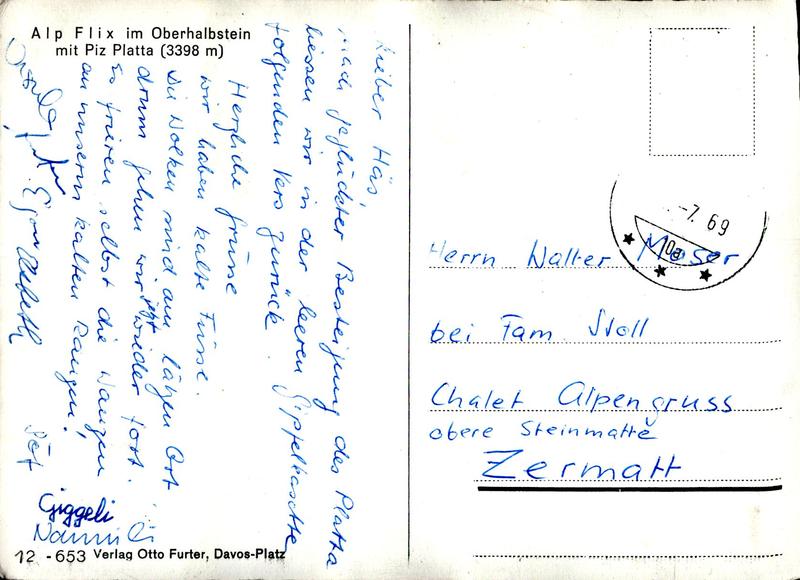 Alp Flix im Oberhalbstein
mit Piz Platta (3398 m)
Lieber Häs,
nach geglückter Besteigung des Platta
liessen wir in der leeren Gipfelkasette
folgenden Vers zurück.
Herzliche Grüsse
wir haben kalte Füsse.
Die Wolken sind am lätzen Ort
drum gehen wir jetzt wieder fort.
Es frieren selbst die Wanzen,
an unsern kalten Ranzen!
Egon
Giggeli
12 -653 Verlag Otto Furter, Davos-Platz
-7.69
10a
Herrn Walter Moser
bei Fam Stoll
Chalet Alpengruss
obere Steinmatte
Zermatt